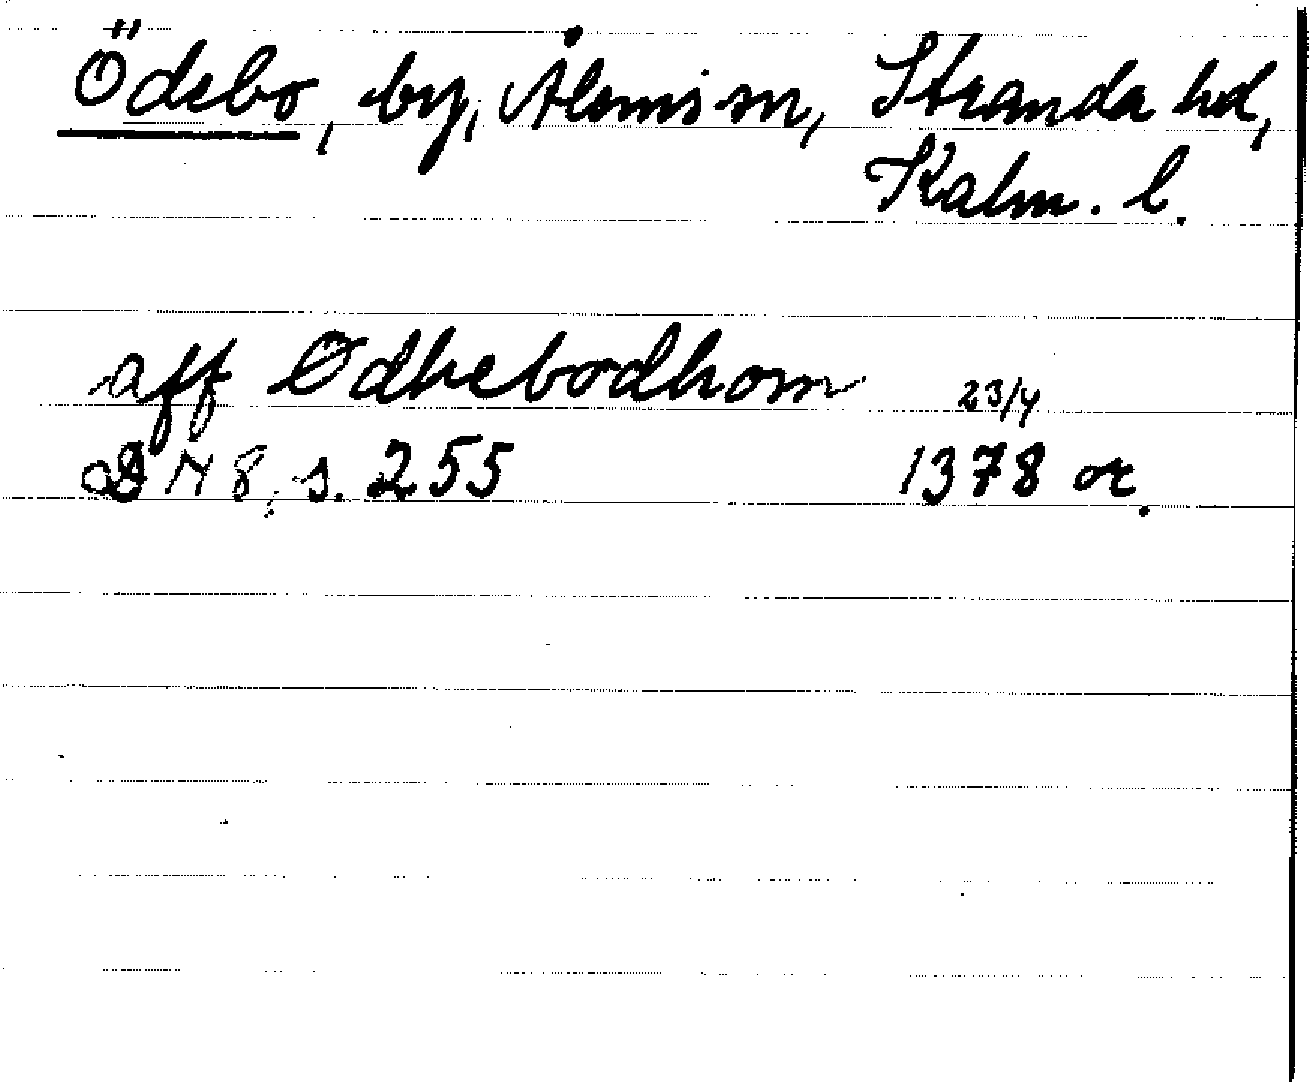 Ödebo, by, Ålems sn, Stranda hd,
Kalm. l.
aff Ödhebodhom 23/4
s. 255 1378 or.